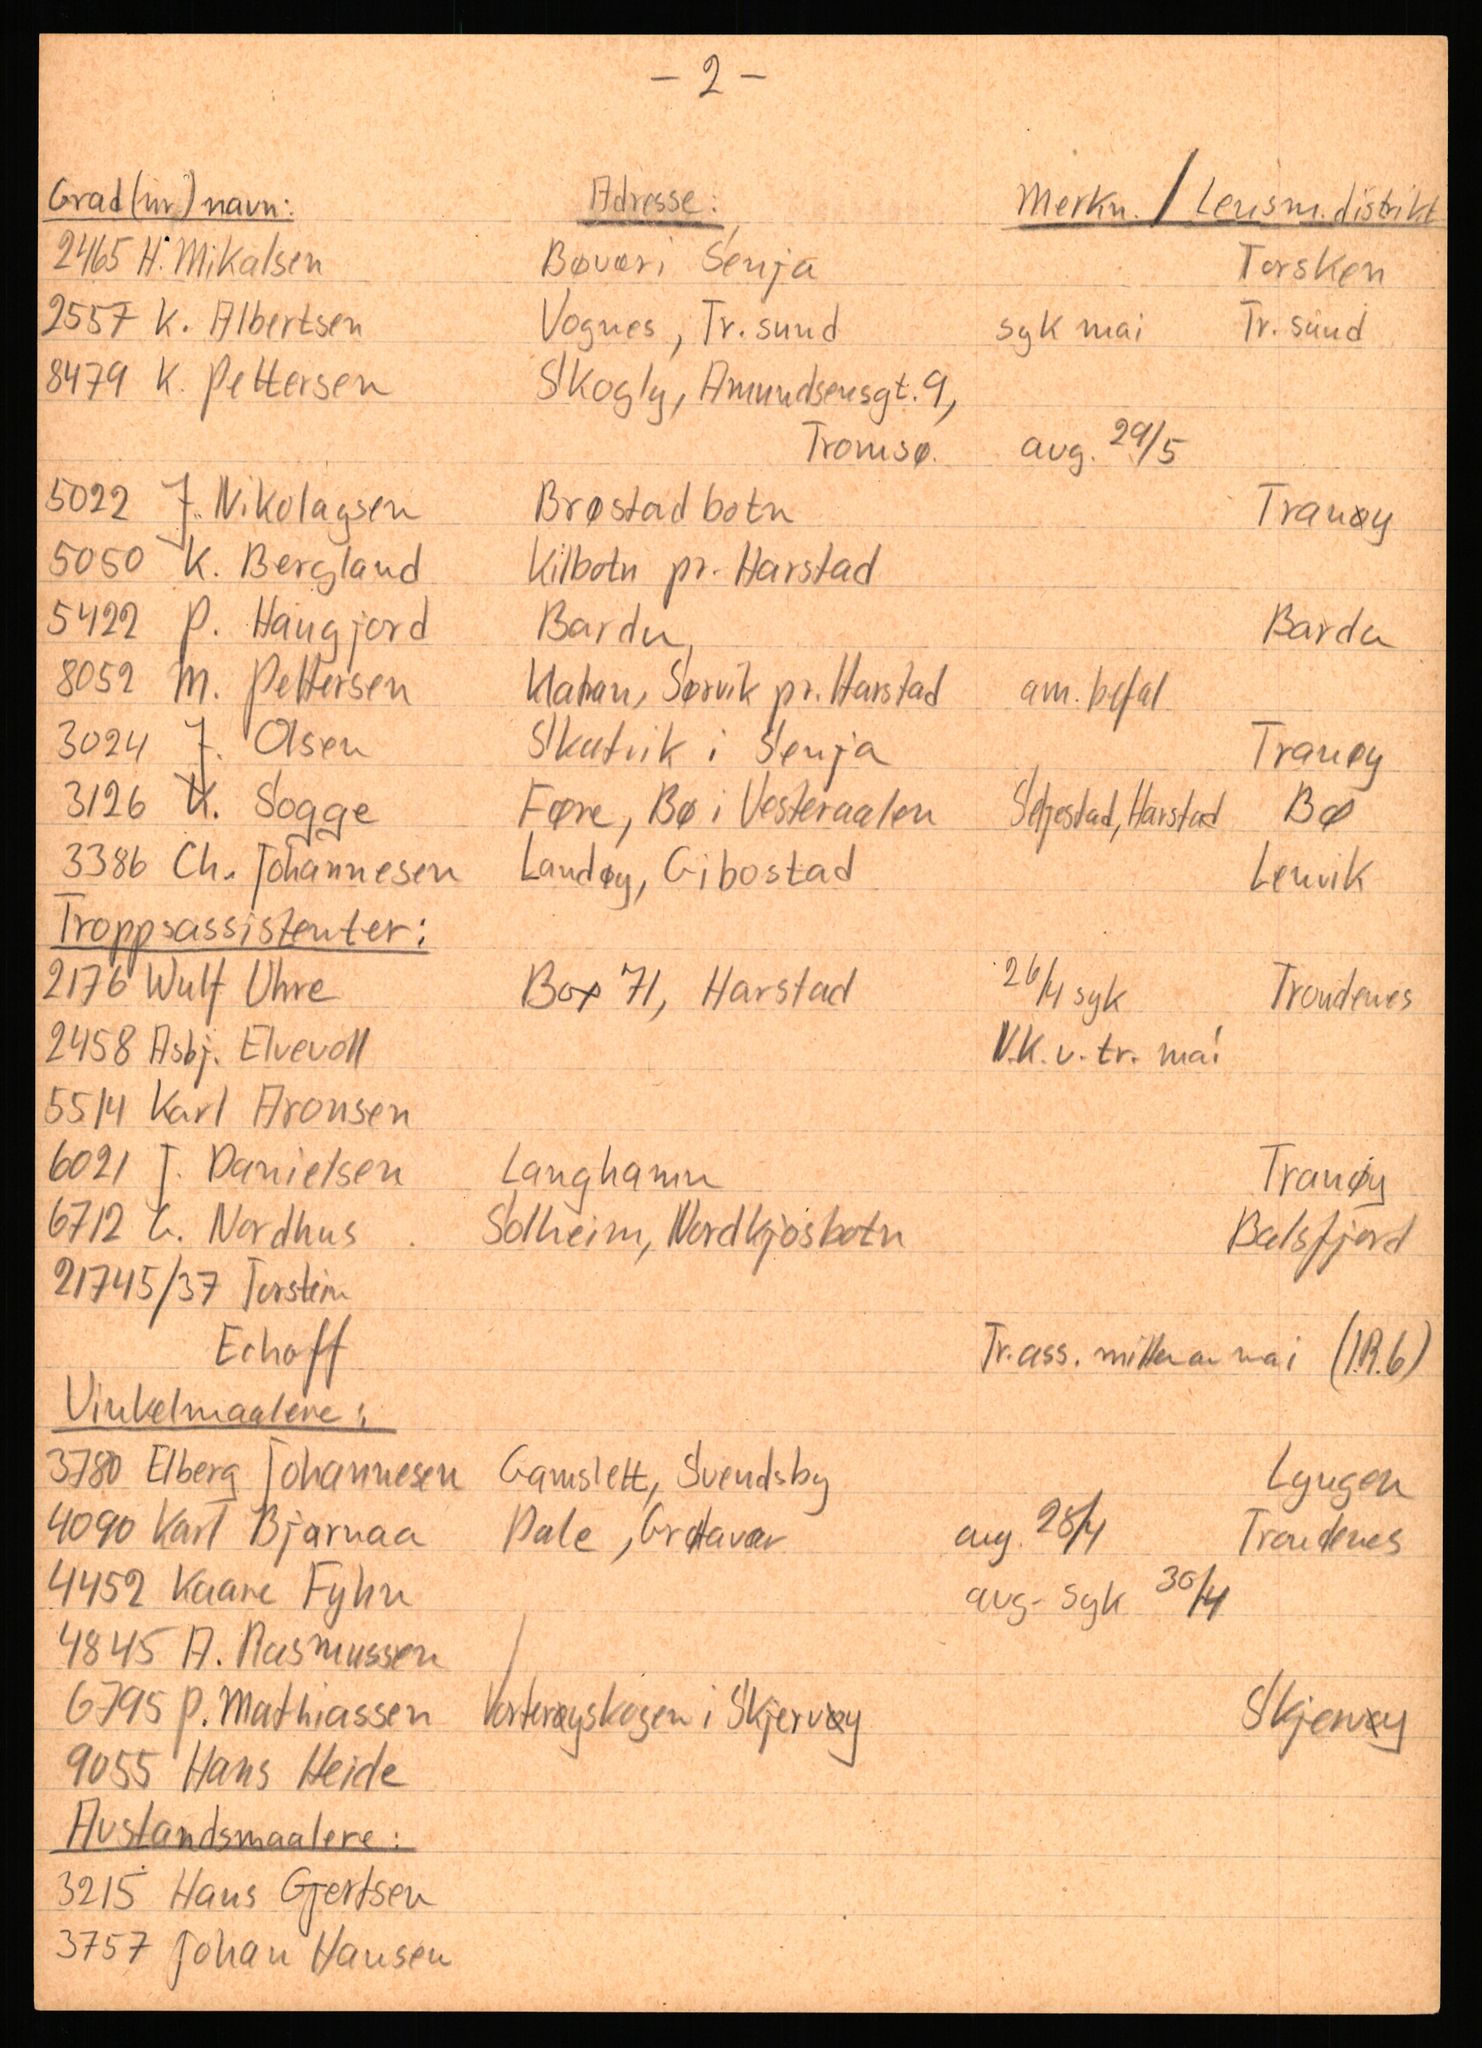 - 2 -
Grad (nr) navn: Adresse: Merkn. / Lensm. distrikt
2465 H. Mikalsen Bøvær i Senja Torsken
2557 K. Albertsen Vognes, Tr. sund syk mai Tr. sund
8479 K. Pettersen Skogly, Amundsensgt. 9,
Tromsø. avg. 29/5
5022 J. Nikolaysen Brøstadbotn Tranøy
5050 K. Bergland Kilbotn pr. Harstad
5422 P. Haugjord Bardu Bardu
8052 M. Pettersen Sørvik pr. Harstad am. befal
3024 J. Olsen Skatvik i Senja Tranøy
3126 K. Sogge Føre, Bø i Vesteraalen Seljestad, Harstad Bø
3386 Ch. Johannesen Landøy, Gibostad Lenvik
Troppsassistenter:
2176 Wulf Uhre Box 71, Harstad 26/4 syk Trondenes
2458 Asbj. Elvevoll N.K. v. tr. mai
5514 Karl Aronsen
6021 J. Danielsen Langhamn Tranøy
6712 G. Nordhus Solheim, Nordkjosbotn Balsfjord
21745/37 Torstein
Echoff Tr. ass. midten av mai (I.R.6)
Vinkelmaalere:
3780 Elberg Johannesen Gamslett, Svendsby Lyngen
4090 Karl Bjarnaa Dale, Grøtavær avg. 28/4 Trondenes
4452 Kaare Fyhn avg. syk 30/4
4845 A. Rasmussen
6795 P. Mathiassen Vorterøyskogen i Skjervøy Skjervøy
9055 Hans Heide
Avstandsmaalere:
3215 Hans Gjertsen
3757 Johan Hansen